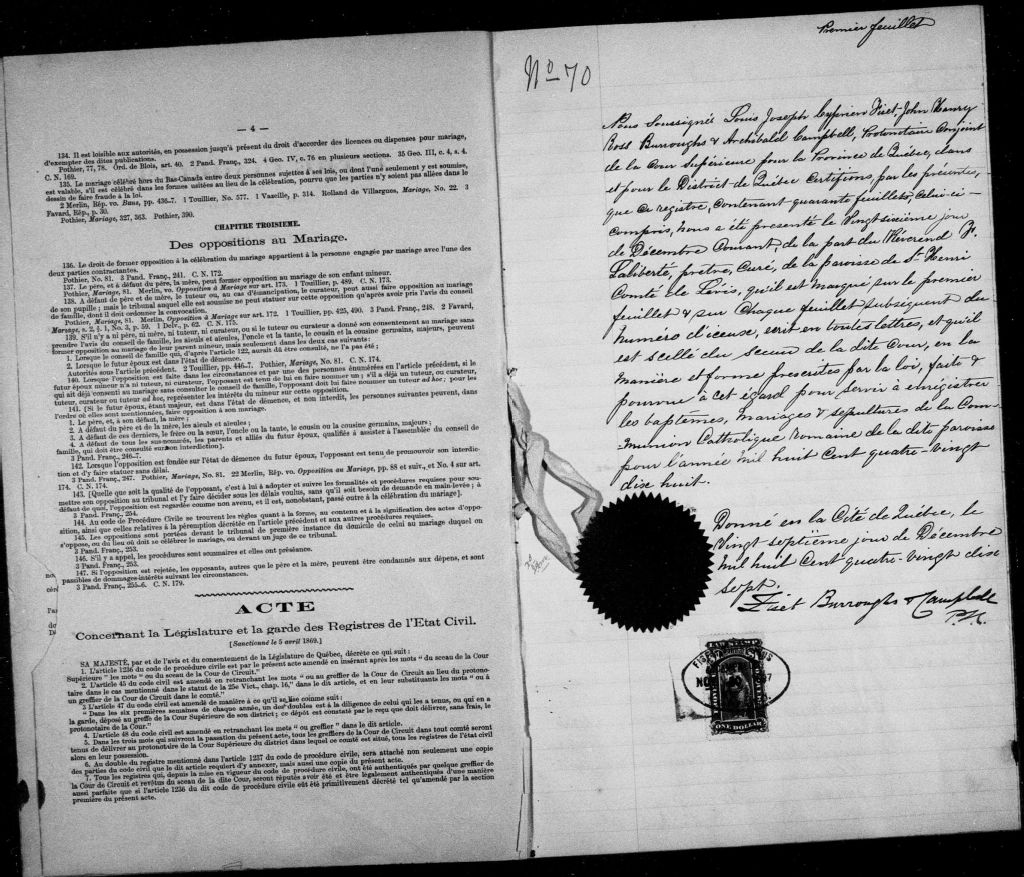 — 4 —
134. Il est loisible aux autorités, en possession jusqu'à présent du droit d'accorder des licences ou dispenses pour mariage,
d'exempter des dites publications.
Pothier, 77, 78. Ord. de Blois, art. 40. 2 Pand. Franç., 324. 4 Geo. IV, c. 76 en plusieurs sections. 35 Geo. III, c. 4, s. 4.
C. N. 169.
135. Le mariage célébré hors du Bas-Canada entre deux personnes sujettes à ses lois, ou dont l'une seulement y est soumise,
est valable, s'il est célébré dans les formes usitées au lieu de la célébration, pourvu que les parties n'y soient pas allées dans le
dessin de faire fraude à la loi.
2 Merlin, Rép. vo. Bans, pp. 436-7. 1 Touillier, No. 577. 1 Vazeille, p. 314. Rolland de Villargues, Mariage, No. 22. 3
Favard, Rép., p. 30.
Pothier, Mariage, 327, 363. Pothier, 390.
CHAPITRE TROISIEME.
Des oppositions au Mariage.
136. Le droit de former opposition à la célébration du mariage appartient à la personne engagée par mariage avec l'une des
deux parties contractantes.
Pothier, No. 81. 3 Pand. Franç., 241. C. N. 172.
137. Le père, et à défaut du père, la mère, peut former opposition au mariage de son enfant mineur.
Pothier, Mariage, 81. Merlin, vo. Opposition à Mariage sur art. 173. 1 Touillier, p. 489. C. N. 173.
138. A défaut de père et de mère, le tuteur ou, au cas d'émancipation, le curateur, peut aussi faire opposition au mariage
de son pupille ; mais le tribunal auquel elle est soumise ne peut statuer sur cette opposition qu'après avoir pris l'avis du conseil
de famille, dont il doit ordonner la convocation.
Pothier, Mariage, 81. Merlin, Opposition à Mariage sur art. 172. 1 Touillier, pp. 425, 490. 3 Pand. Franç., 248. 2 Favard,
Mariage, s. 2, § 1, No. 3, p. 59. 1 Delv., p. 62. C. N. 175.
139. S'il n'y a ni père, ni mère, ni tuteur, ni curateur, ou si le tuteur ou curateur a donné son consentement au mariage sans
prendre l'avis du conseil de famille, les aïeuls et aïeules, l'oncle et la tante, le cousin et la cousine germains, majeurs, peuvent
former opposition au mariage de leur parent mineur, mais seulement dans les deux cas suivants :
1. Lorsque le conseil de famille qui, d'après l'article 122, aurait dû être consulté, ne l'a pas été ;
2. Lorsque le futur époux est dans l'état de démence.
Autorités sous l'article précédent. 2 Touillier, pp. 446-7. Pothier, Mariage, No. 81. C. N. 174.
140. Lorsque l'opposition est faite dans les circonstances et par une des personnes énumérées en l'article précédent, si le
futur époux mineur n'a ni tuteur, ni curateur, l'opposant est tenu de lui en faire nommer un ; s'il a déjà un tuteur, ou curateur,
qui ait déjà consenti au mariage sans consulter le conseil de famille, l'opposant doit lui faire nommer un tuteur ad hoc ; pour les
tuteur, curateur ou tuteur ad hoc, représenter les intérêts du mineur sur cette opposition.
141. [Si le futur époux, étant majeur, est dans l'état de démence, et non interdit, les personnes suivantes peuvent, dans
l'ordre où elles sont mentionnées, faire opposition à son mariage.
1. Le père, et, à son défaut, la mère ;
2. A défaut du père et de la mère, les aïeuls et aïeules ;
3. A défaut de ces derniers, le frère ou la sœur, l'oncle ou la tante, le cousin ou la cousine germains, majeurs ;
4. A défaut de tous les sus-nommés, les parents et alliés du futur époux, qualifiés à assister à l'assemblée du conseil de
famille, qui doit être consulté sur son interdiction].
3 Pand. Franç., 246-7.
142. Lorsque l'opposition est fondée sur l'état de démence du futur époux, l'opposant est tenu de promouvoir son interdic-
tion et d'y faire statuer sans délai.
3 Pand. Franç., 247. Pothier, Mariage, No. 81. 22 Merlin, Rép. vo. Opposition au Mariage, pp. 88 et suiv., et No. 4 sur art.
174. C. N. 174.
143. [Quelle que soit la qualité de l'opposant, c'est à lui à adopter et suivre les formalités et procédures requises pour sou-
mettre son opposition au tribunal et l'y faire décider sous les délais voulus, sans qu'il soit besoin de demande en main-levée ; à
défaut de quoi, l'opposition est regardée comme non avenue, et il est, nonobstant, passé outre à la célébration du mariage].
3 Pand. Franç., 254.
144. Au code de Procédure Civile se trouvent les règles quant à la forme, au contenu et à la signification des actes d'oppo-
sition, ainsi que celles relatives à la péremption décrétée en l'article précédent et aux autres procédures requises.
145. Les oppositions sont portées devant le tribunal de première instance du domicile de celui au mariage duquel on
s'oppose, ou du lieu où doit se célébrer le mariage, ou devant un juge de ce tribunal.
3 Pand. Franç., 253.
146. S'il y a appel, les procédures sont sommaires et elles ont préséance.
3 Pand. Franç., 253.
147. Si l'opposition est rejetée, les opposants, autres que le père et la mère, peuvent être condamnés aux dépens, et sont
passibles de dommages-intérêts suivant les circonstances.
3 Pand. Franç., 255-6. C. N. 179.
ACTE
Concernant la Législature et la garde des Registres de l'Etat Civil.
[Sanctionné le 5 avril 1869.]
SA MAJESTÉ, par et de l'avis et du consentement de la Législature de Québec, décrète ce qui suit :
1. L'article 1236 du code de procédure civile est par le présent acte amendé en insérant après les mots " du sceau de la Cour
Supérieure " les mots " ou du sceau de la Cour de Circuit."
2. L'article 45 du code civil est amendé en retranchant les mots " ou au greffier de la Cour de Circuit au lieu du protono-
taire dans le cas mentionné dans le statut de la 25e Vict., chap. 16," dans le dit article, et en leur substituants les mots " ou à
un greffier de la Cour de Circuit dans le comté."
3 L'article 47 du code civil est amendé de manière à ce qu'il se lise comme suit :
" Dans les six premières semaines de chaque année, un des doubles est à la diligence de celui qui les a tenus, ou qui en a
la garde, déposé au greffe de la Cour Supérieure de son district ; ce dépôt est constaté par le reçu que doit délivrer, sans frais, le
protonotaire de la Cour."
4. L'article 48 du code civil est amendé en retranchant les mots " ou greffier " dans le dit article.
5. Dans les trois mois qui suivront la passation du présent acte, tous les greffiers de la Cour de Circuit dans tout comté seront
tenus de délivrer au protonotaire de la Cour Supérieure du district dans lequel ce comté est situé, tous les registres de l'état civil
alors en leur possession.
6. Au double du registre mentionné dans l'article 1237 du code de procédure civile, sera attaché non seulement une copie
des parties du code civil que le dit article requiert d'y annexer, mais aussi une copie du présent acte.
7. Tous les registres qui, depuis la mise en vigueur du code de procédure civile, ont été authentiqués par quelque greffier de
la Cour de Circuit et revêtus du sceau de la dite Cour, seront réputés avoir été et être légalement authentiqués d'une manière
aussi parfaite que si l'article 1236 du dit code de procédure civile eût été primitivement décrété tel qu'amendé par la section
première du présent acte.
Premier feuillet
No 70
Nous Soussigné Louis Joseph Cyprien Fiset, John Henry
Ross Burroughs & Archibald Campbell, Protonotaire Conjoint
de la Cour Supérieure pour la Province de Québec, dans
et pour le District de Québec Certifions, par les présentes,
que ce registre, contenant quarante feuillets, celui-ci
compris, nous a été présenté le Vingt sixième jour
de Décembre Courant, de la part du Révérend F.
Laliberté, prêtre, Curé, de la paroisse de St. Henri
Comté de Lévis, qu'il est marqué sur le premier
feuillet & sur chaque feuillet subséquent du
numéro d'icause, écrit en toutes lettres, et qu'il
est scellé du sceau de la dite Cour, en la
manière et forme prescrites par la loi, faite &
pourvue à cet égard pour servir à enregistrer
les baptêmes, mariages & sépultures de la Com-
munion Catholique Romaine de la dite paroisse
pour l'année mil huit Cent quatre-vingt
dix huit.
Donné en la Cité de Québec, le
Vingt septième jour de Décembre
mil huit Cent quatre-vingt dix
sept.
Fiset Burroughs & Campbell
P.S.C.
ONE DOLLAR